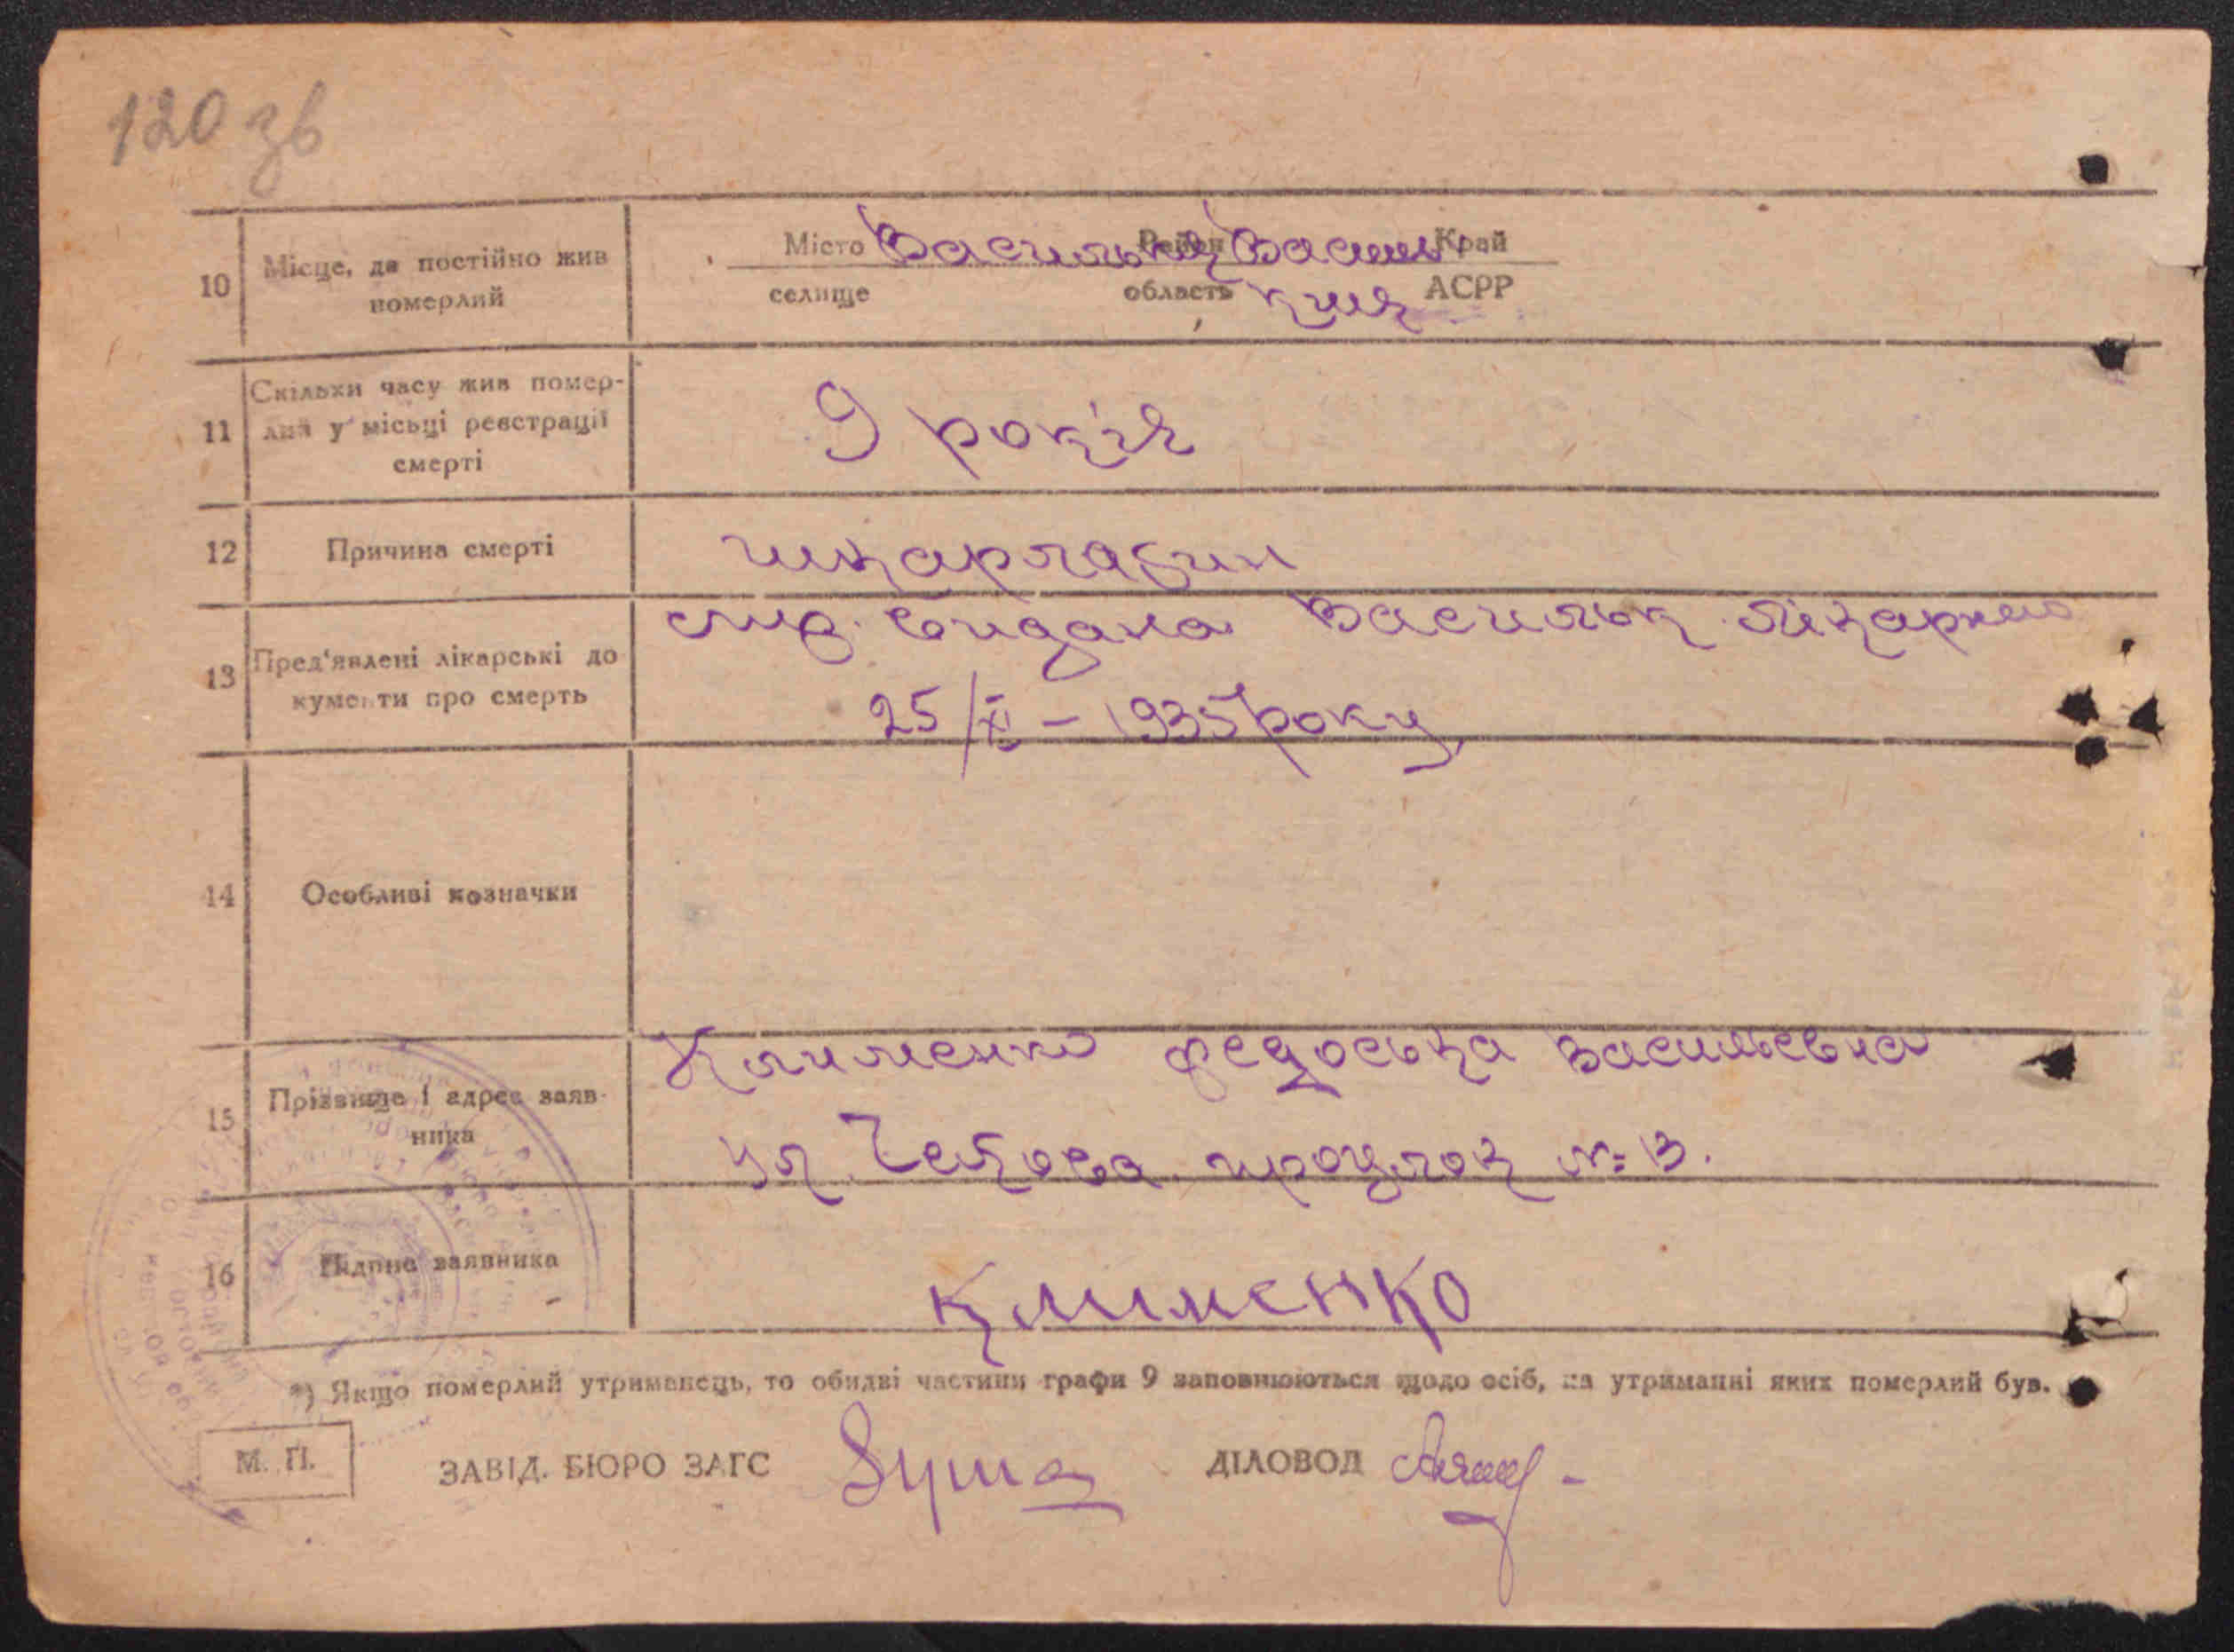 120 зв
10 Місце, де постійно жив померлий
Місто Васильків Район Васильк Край
селище область київ АСРР
11 Скільки часу жив помер-
лий у місьці реєстрації
смерті
9 років
12 Причина смерті
шкарлатин
13 Пред'явлені лікарські до
кументи про смерть
видана Васильк. лікарнею
25/XI – 1935 року
14 Особливі позначки
15 Прізвище і адрес заяв-
ника
Клименко Федоська Васильевна
ул. проулок № 13.
16 Підпис заявника
Клименко
*) Якщо померлий утриманець, то обидві частини графи 9 заповнюються щодо осіб, на утриманні яких померлий був.
М. П. ЗАВІД. БЮРО ЗАГС ДІЛОВОД